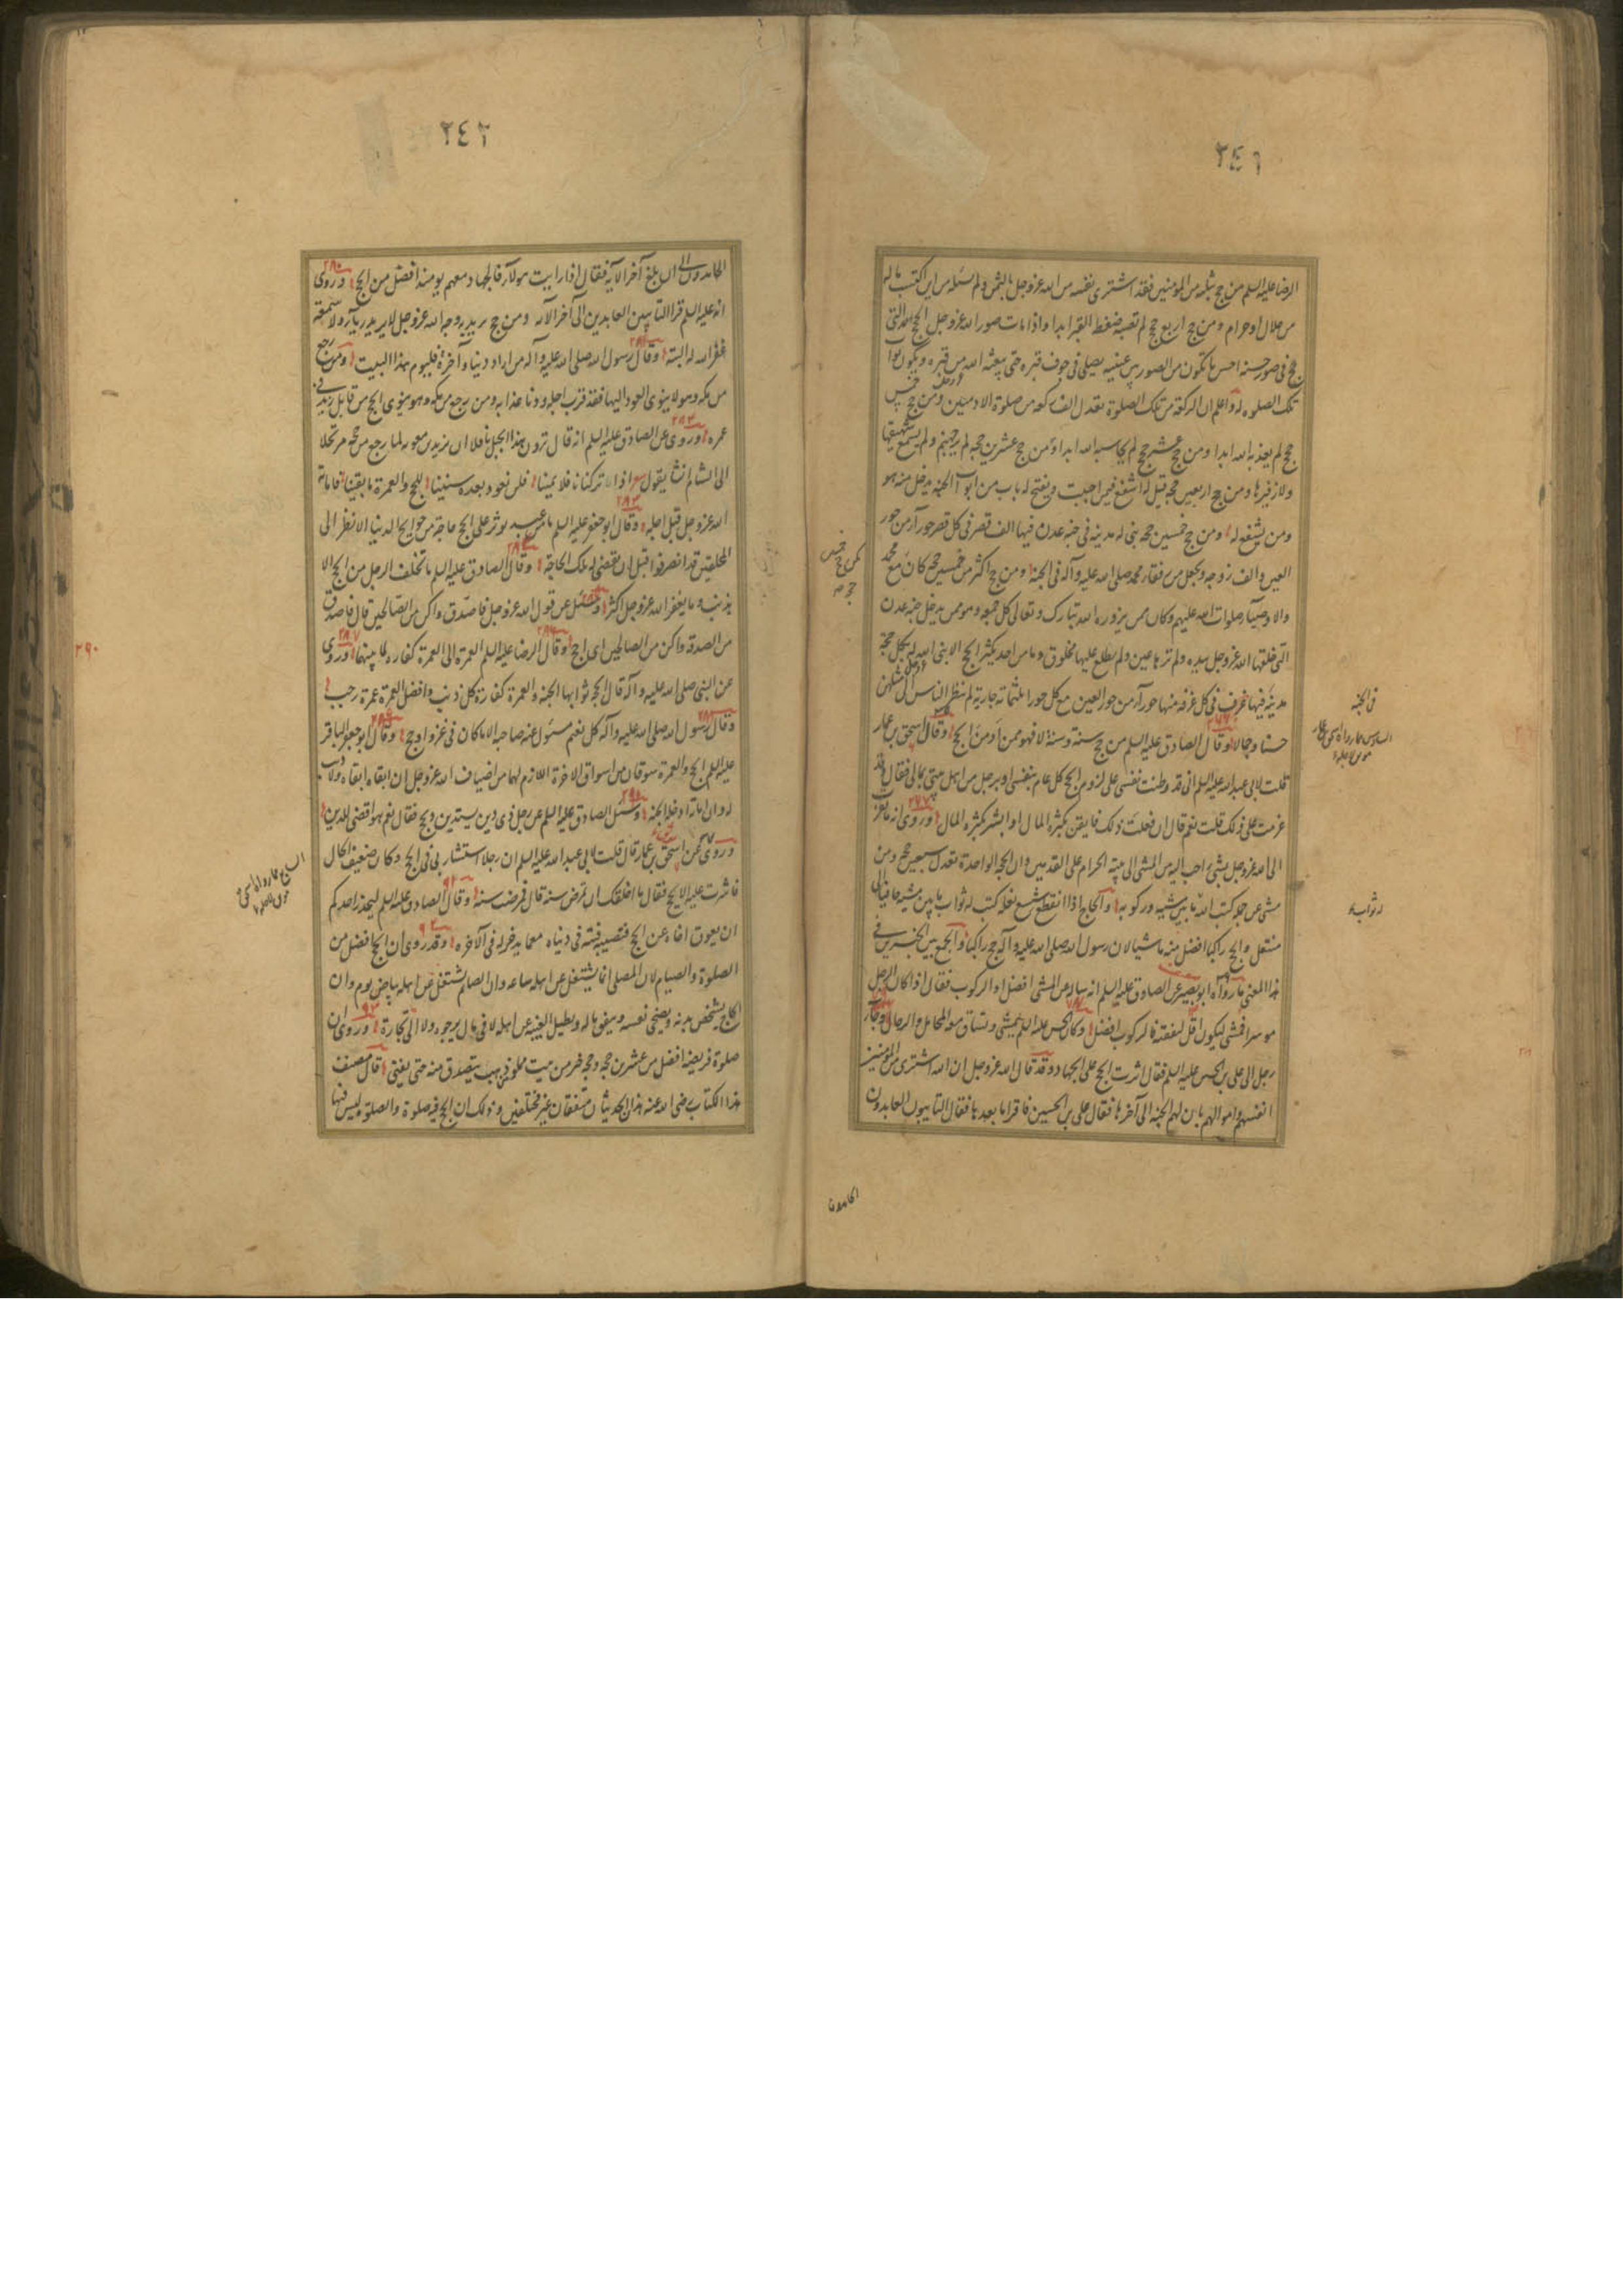 ٢٤١
الرضا عليه السلم من حج بثلثة من المومنين فقد اشترى نفسه من الله عز وجل بالثمن ولم يسئله من اين اكتسب ماله
من حلال او حرام ومن حج اربع حجج لم تصبه ضغطة القبر ابدا واذا مات صور الله عز وجل الحج التى
حج فى صورة حسنة احسن ما تكون من الصور بين عينيه يصلى فى جوف قبره حتى يبعثه الله من قبره ويكون ثواب
تلك الصلوة له واعلم ان الركعة من تلك الصلوة تعدل الف ركعة من صلوة الادميين ومن حج خمس
حجج لم يعذبه الله ابدا ومن حج عشر حجج لم يحاسبه الله ابدا ومن حج عشرين حجة لم ير جهنم ولم يسمع شهيقها
ولا زفيرها ومن حج اربعين حجة قيل له اشفع فيمن احببت ويفتح له باب من ابواب الجنة يدخل منه هو
ومن يشفع له ومن حج خمسين حجة بنى له مدينة فى جنة عدن فيها الف قصر فى كل قصر حورآء من حور
العين والف زوجة ويجعل من رفقاء محمد صلى الله عليه وآله فى الجنة ومن حج اكثر من خمسين حجة كان كمن حج خمسين حجة مع محمد
والاوصياء صلوات الله عليهم وكان ممن يزوره الله تبارك وتعالى كل جمعة وهو ممن يدخل جنة عدن
التى خلقها الله عز وجل بيده ولم ترها عين ولم يطلع عليها مخلوق وما من احد يكثر الحج الا بنى الله له بكل حجة
مدينة فى الجنة فيها غرف فى كل غرفة منها حورآء من حور العين مع كل حورا ثلثمائة جارية لم ينظر الناس الى مثلهن
حسنا وجمالا وقال الصادق عليه السلم من حج سنة وسنة لا فهو ممن ادمن الحج وقال اسحق بن عمار
قلت لابى عبد الله عليه السلم انى قد وطنت نفسى على لزوم الحج كل عام بنفسى او برجل من اهل بيتى بمالى فقال وقد
عزمت على ذلك قلت نعم قال ان فعلت ذلك فايقن بكثرة المال او ابشر بكثرة المال وروى انه ما تقرب
الى الله عز وجل بشىء احب اليه من المشى الى بيته الحرام على القدمين وان الحجة الواحدة تعدل سبعين حجة ومن
مشى عن جمله كتب الله له ثواب ما بين مشيه وركوبه والحاج اذا انقطع شسع نعله كتب له ثواب ما بين مشيه حافيا الى
متنعل والحج راكبا افضل منه ماشيا لان رسول الله صلى الله عليه وآله حج راكبا والجمع بين الخبرين فى
هذا المعنى ما رواه ابو بصير عن الصادق عليه السلم انه ساله عن المشى افضل او الركوب فقال اذا كان الرجل
موسرا فمشى ليكون اقل لنفقته فالركوب افضل وكان الحسن عليه السلم يمشى وتساق معه المحامل والرحال وجاء
رجل الى على بن الحسين عليه السلم فقال اثرت الحج على الجهاد وقد قال الله عز وجل ان الله اشترى من المومنين
انفسهم واموالهم بان لهم الجنة الى آخرها فقال على بن الحسين فاقرا ما بعدها فقال التائبون العابدون
الحامدون
٢٤٢
الحامدون الى ان بلغ آخر الآية فقال اذا رايت هولآء فالجهاد معهم يومئذ افضل من الحج وروى
انه عليه السلم قرا التائبين العابدين الى آخر الآية ومن حج يريد به وجه الله عز وجل لا يريد به رياء ولا سمعة
غفر الله له البتة وقال رسول الله صلى الله عليه وآله من اراد دنيا وآخرة فليؤم هذا البيت ومن رجع
من مكة وهو لا ينوى العود اليها فقد قرب اجله ودنا عذابه ومن رجع من مكة وهو ينوى الحج من قابل زيد فى
عمره وروى عن الصادق عليه السلم انه قال ترون هذا الجبل ثافلا ان يزيد بن معوية لما رجع من حجه مرتحلا
الى الشام انشا يقول اذا تركنا ثافلا يمينا فلن نعود بعده سنينا للحج والعمرة ما بقينا فاماته
الله عز وجل قبل اجله وقال ابو جعفر عليه السلم ما من عبد يوثر على الحج حاجة من حوايج الدنيا الا نظر الى
المحلقين قد انصرفوا قبل ان تقضى له تلك الحاجة وقال الصادق عليه السلم ما تخلف الرجل من الحج الا
بذنب وما يغفر الله عز وجل اكثر وسئل عن قول الله عز وجل فاصدق واكن من الصالحين قال فاصدق
من الصدقة واكن من الصالحين اى احج وقال الرضا عليه السلم العمرة الى العمرة كفارة لما بينهما وروى
عن النبى صلى الله عليه وآله قال الحجة ثوابها الجنة والعمرة كفارة كل ذنب وافضل العمرة عمرة رجب
وقال رسول الله صلى الله عليه وآله كل نعيم مسئول عنه صاحبه الا ما كان فى غزو او حج وقال ابو جعفر الباقر
عليه السلم الحج والعمرة سوقان من اسواق الاخرة اللازم لهما من اضياف الله عز وجل ان ابقاه ابقاه ولا ذنب
له وان اماته ادخله الجنة وسئل الصادق عليه السلم عن رجل ذى دين يستدين ويحج فقال نعم هو اقضى للدين
وروى عن اسحق بن عمار قال قلت لابى عبد الله عليه السلم ان رجلا استشارنى فى الحج وكان ضعيف الحال
فاشرت عليه الا يحج فقال ما اخلقك ان تمرض سنة قال فمرضت سنة وقال الصادق عليه السلم ليحذر احدكم
ان يعوق اخاه عن الحج فتصيبه فتنة فى دنياه مع ما يدخر له فى الآخرة وقد روى ان الحج افضل من
الصلوة والصيام لان المصلى انما يشتغل عن اهله ساعة وان الصائم يشتغل عن اهله بياض يوم وان
الحاج يشخص بدنه ويضحى نفسه وينفق ماله ويطيل الغيبة عن اهله لا فى مال يرجوه ولا الى تجارة وروى ان
صلوة فريضة افضل من عشرين حجة وحجة خير من بيت مملو ذهب يتصدق منه حتى يفنى قال مصنف
هذا الكتاب رضى الله عنه هذان الحديثان متفقان غير مختلفين وذلك ان الحج فيه صلوة والصلوة ليس فيها
٢٩٠